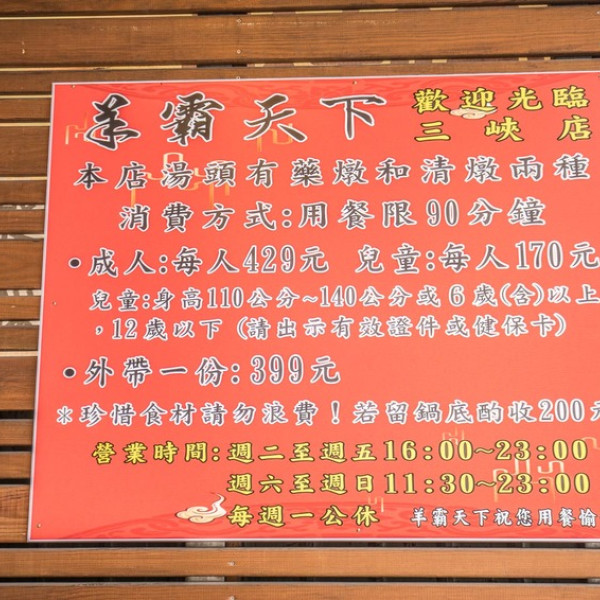 羊霸天下 歡迎光臨
三峽店
本店湯頭有藥燉和清燉兩種
消費方式:用餐限90分鐘
•成人:每人429元 兒童:每人170元
兒童:身高110公分~140公分或6歲(含)以上
，12歲以下(請出示有效證件或健保卡)
•外帶一份:399元
＊珍惜食材請勿浪費！若留鍋底酌收200元
營業時間:週二至週五16:00~23:00
週六至週日11:30~23:00
每週一公休 羊霸天下祝您用餐愉